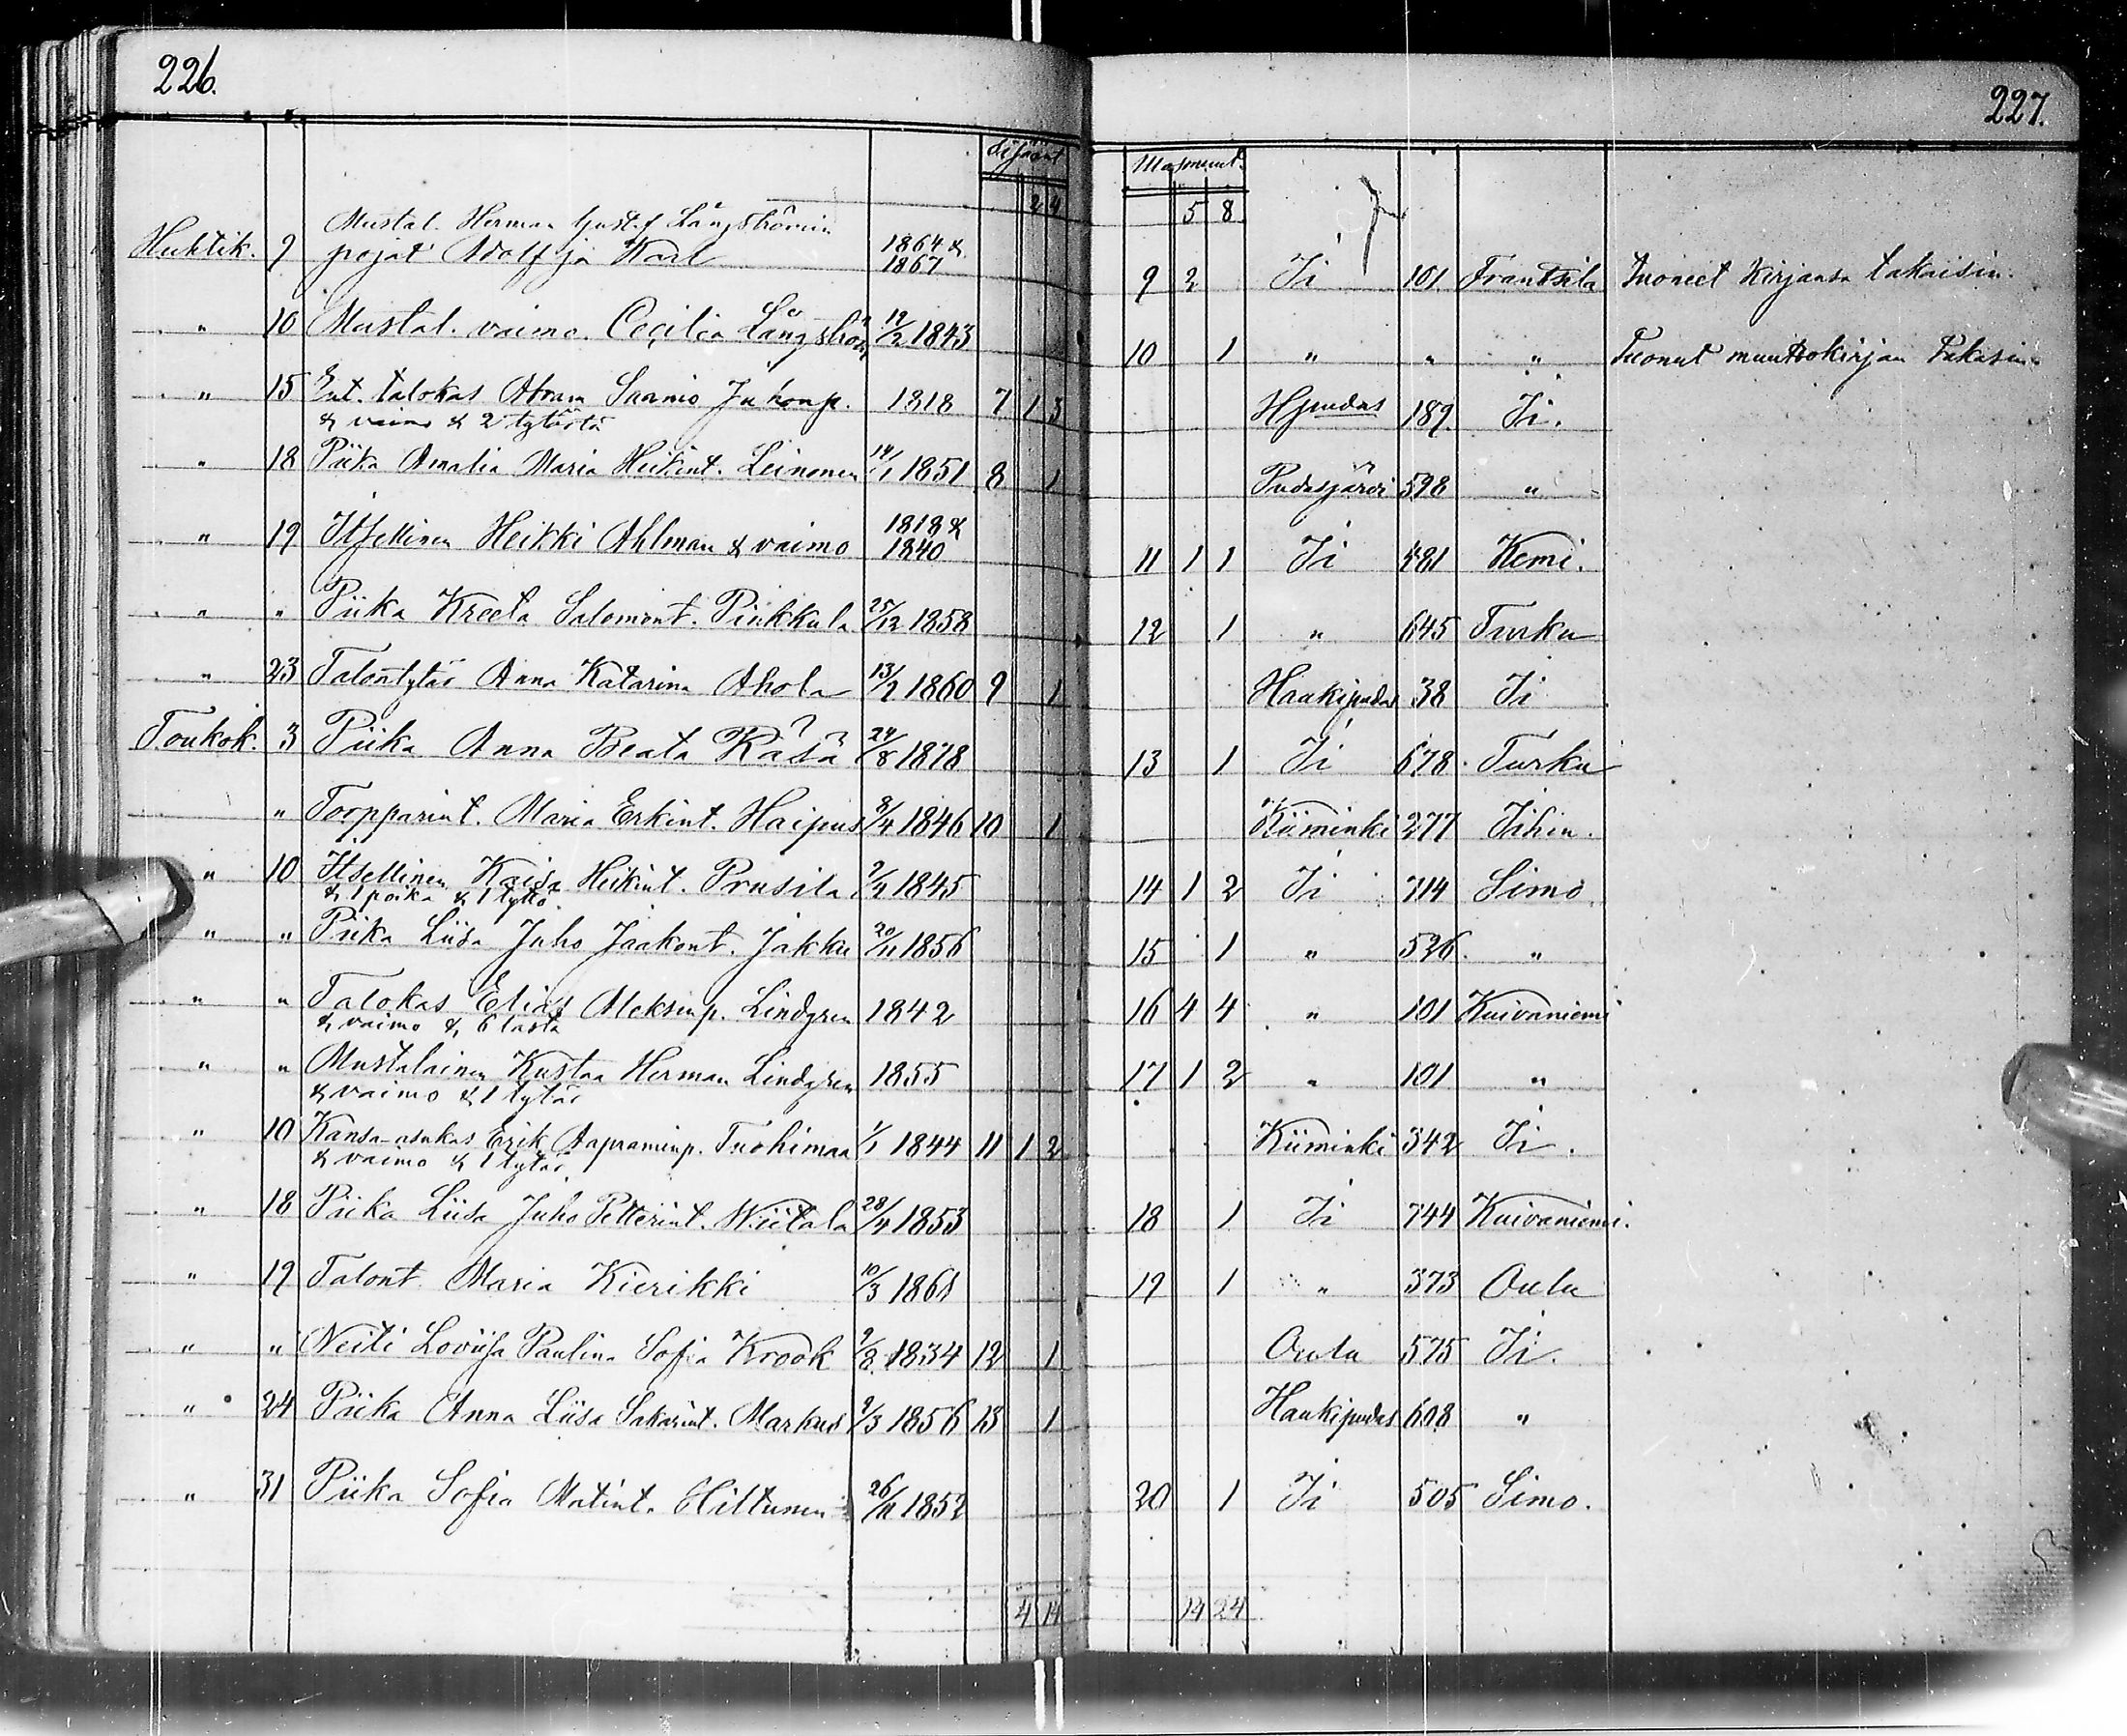 226.
227.
2 4
5 8
Mustal. Herman Gustaf Långströmin
Huhtik. 9 pojat Adolf ja Karl 1864 & 1867 9 2 Ii 101 Frantsila tuoneet kirjansa takaisin.
" 10 Mustal. vaimo. Cecilia Långström 19/2 1843 10 1 " " " Tuonut muuttokirjan takasin.
" 15 Ent. talokas Abram Saamio Juhonp. 1818 7 1 3 Hjpudas 189 Ii.
& vaimo & 2 tytärtä
" 18 Piika Amalia Maria Heikint. Leinonen 14/1 1851 8 1 Pudasjärvi 598 "
" 19 Itsellinen Heikki Ahlman & vaimo 1818 & 1840 11 1 1 Ii 481 Kemi.
" " Piika Kreeta Salomont. Pirkkula 25/12 1858 12 1 " 645 Turku
" 23 Talontytär Anna Katarina Ahola 13/2 1860 9 1 Haukipudas 38 Ii
Toukok. 3 Piika Anna Beata Räsä 24/8 1878 13 1 Ii 678 Turku
" Torpparint. Maria Erkint. Haipus 8/4 1846 10 1 Kiiminki 277 Iihin.
" 10 Itsellinen Kaisa Heikint. Prusila 2/4 1845 14 1 2 Ii 714 Simo
& 1 poika & 1 tyttö
" " Piika Liisa Juho Jaakont. Jakku 20/11 1856 15 1 " 526 "
" " Talokas Elias Aleksinp. Lindgren 1842 16 4 4 " 101 Kuivaniemi
& vaimo & 6 lasta
" " Mustalainen Kustaa Herman Lindgren 1855 17 1 2 " 101 "
& vaimo & 1 tytär
" 10 Kansa-asukas Erik Aapraminp. Tuohimaa 1/1 1844 11 1 2 Kiiminki 342 Ii.
& vaimo & 1 tytär
" 18 Piika Liisa Juho Petterint. Wiitala 28/4 1853 18 1 Ii 744 Kuivaniemi.
" 19 Talont. Maria Kierikki 10/3 1861 19 1 " 373 Oulu
" " Neiti Lovisa Paulina Sofia Krook 9/8 1834 12 1 Oulu 575 Ii.
" 24 Piika Anna Liisa Sakarint. Markus 9/3 1856 13 1 Haukipudas 608 "
" 31 Piika Sofia Matint. Hiltunen 26/11 1852 20 1 Ii 505 Simo.
4 14 14 24